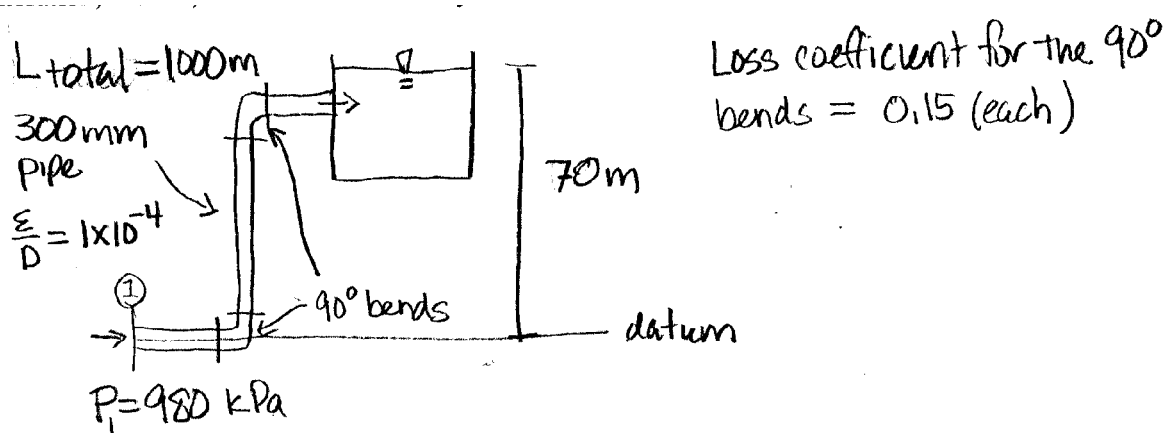 L total = 1000m
300mm
pipe
ε/D = 1x10⁻⁴
①
P₁ = 980 kPa
90° bends
70m
datum
Loss coefficient for the 90°
bends = 0.15 (each)